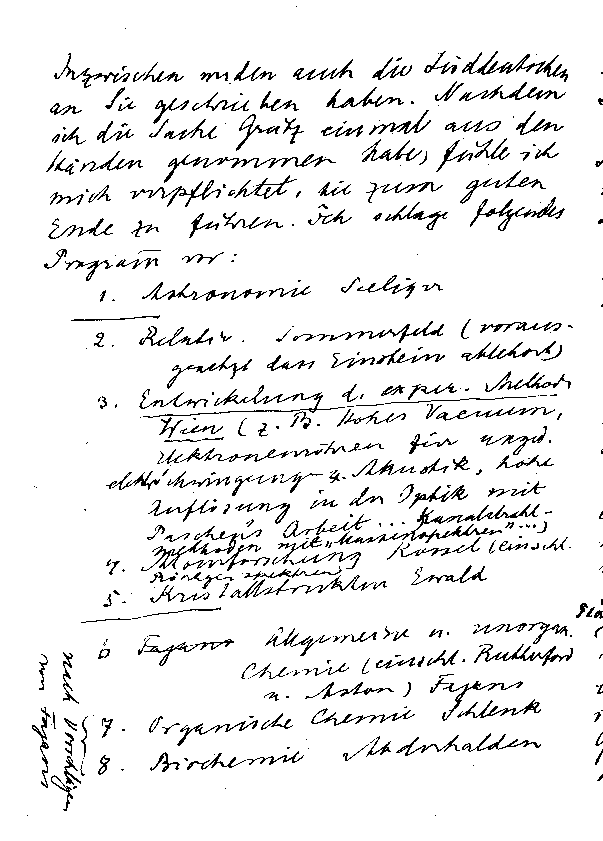 Inzwischen werden auch die Süddeutschen
an Sie geschrieben haben. Nachdem
ich die Sache Grätz einmal aus den
Händen genommen habe, fühle ich
mich verpflichtet, sie zum guten
Ende zu führen. Ich schlage folgendes
Program̄ vor:
1. Astronomie Seeliger
2. Relativ. Sommerfeld (voraus-
gesetzt dass Einstein ablehnt)
3. Entwickelung d. exper. Method.
Wien (z. B. Hohes Vacuum,
Elektronenröhren für
elektr. Schwingungen u. Akustik, hohe
Auflösung in der Optik mit
Paschen's Arbeit ... Kanalstrahl-
methoden mit "Massenspektren"...)
4. Atomforschung Kossel (einschl.
Röntgenspektren)
5. Kristallstruktur Ewald
6 Fajans Allgemeine u. unorgan.
Chemie (einschl. Rutherford
u. Aston) Fajans
7. Organische Chemie Schlenk
8. Biochemie Abderhalden
nach Vorschlägen
von Fajans